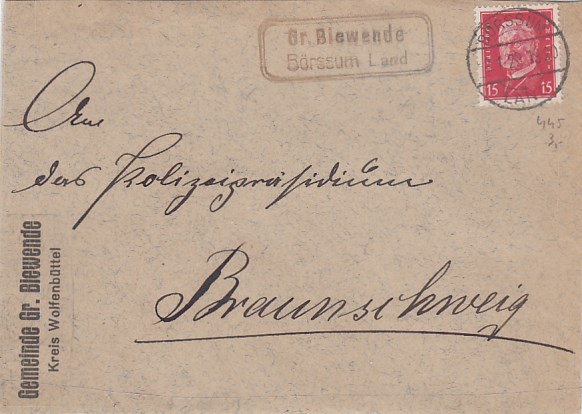 Gr. Biewende
Börssum Land
15 15
BÖRSSUM
LAND
445
3,-
An
das Polizeipräsidium
Braunschweig
Gemeinde Gr. Biewende
Kreis Wolfenbüttel